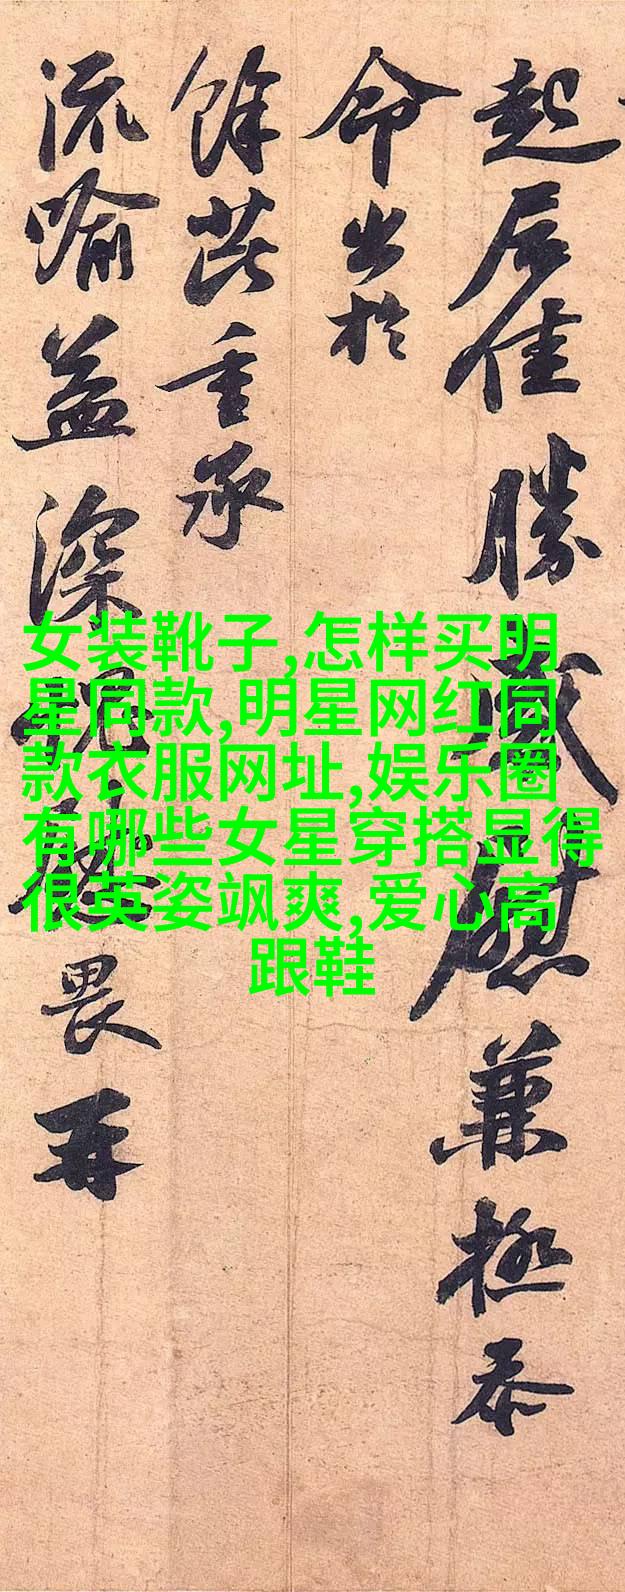 起居佳勝感慰兼極泰
命出於
餘芷重承
流喻益深
畏再
女装靴子,怎样买明
星同款,明星网红同
款衣服网址,娱乐圈
有哪些女星穿搭显得
很英姿飒爽,爱心高
跟鞋